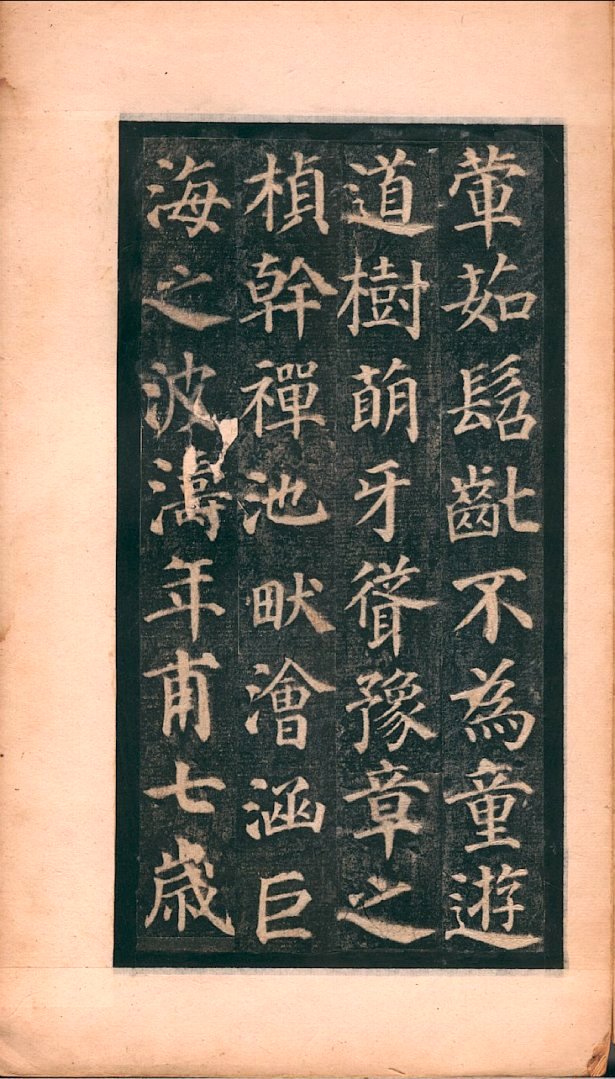 葷茹髫齔不為童遊
道樹萌牙聳豫章之
楨幹禪池畎澮涵巨
海之波濤年甫七歲